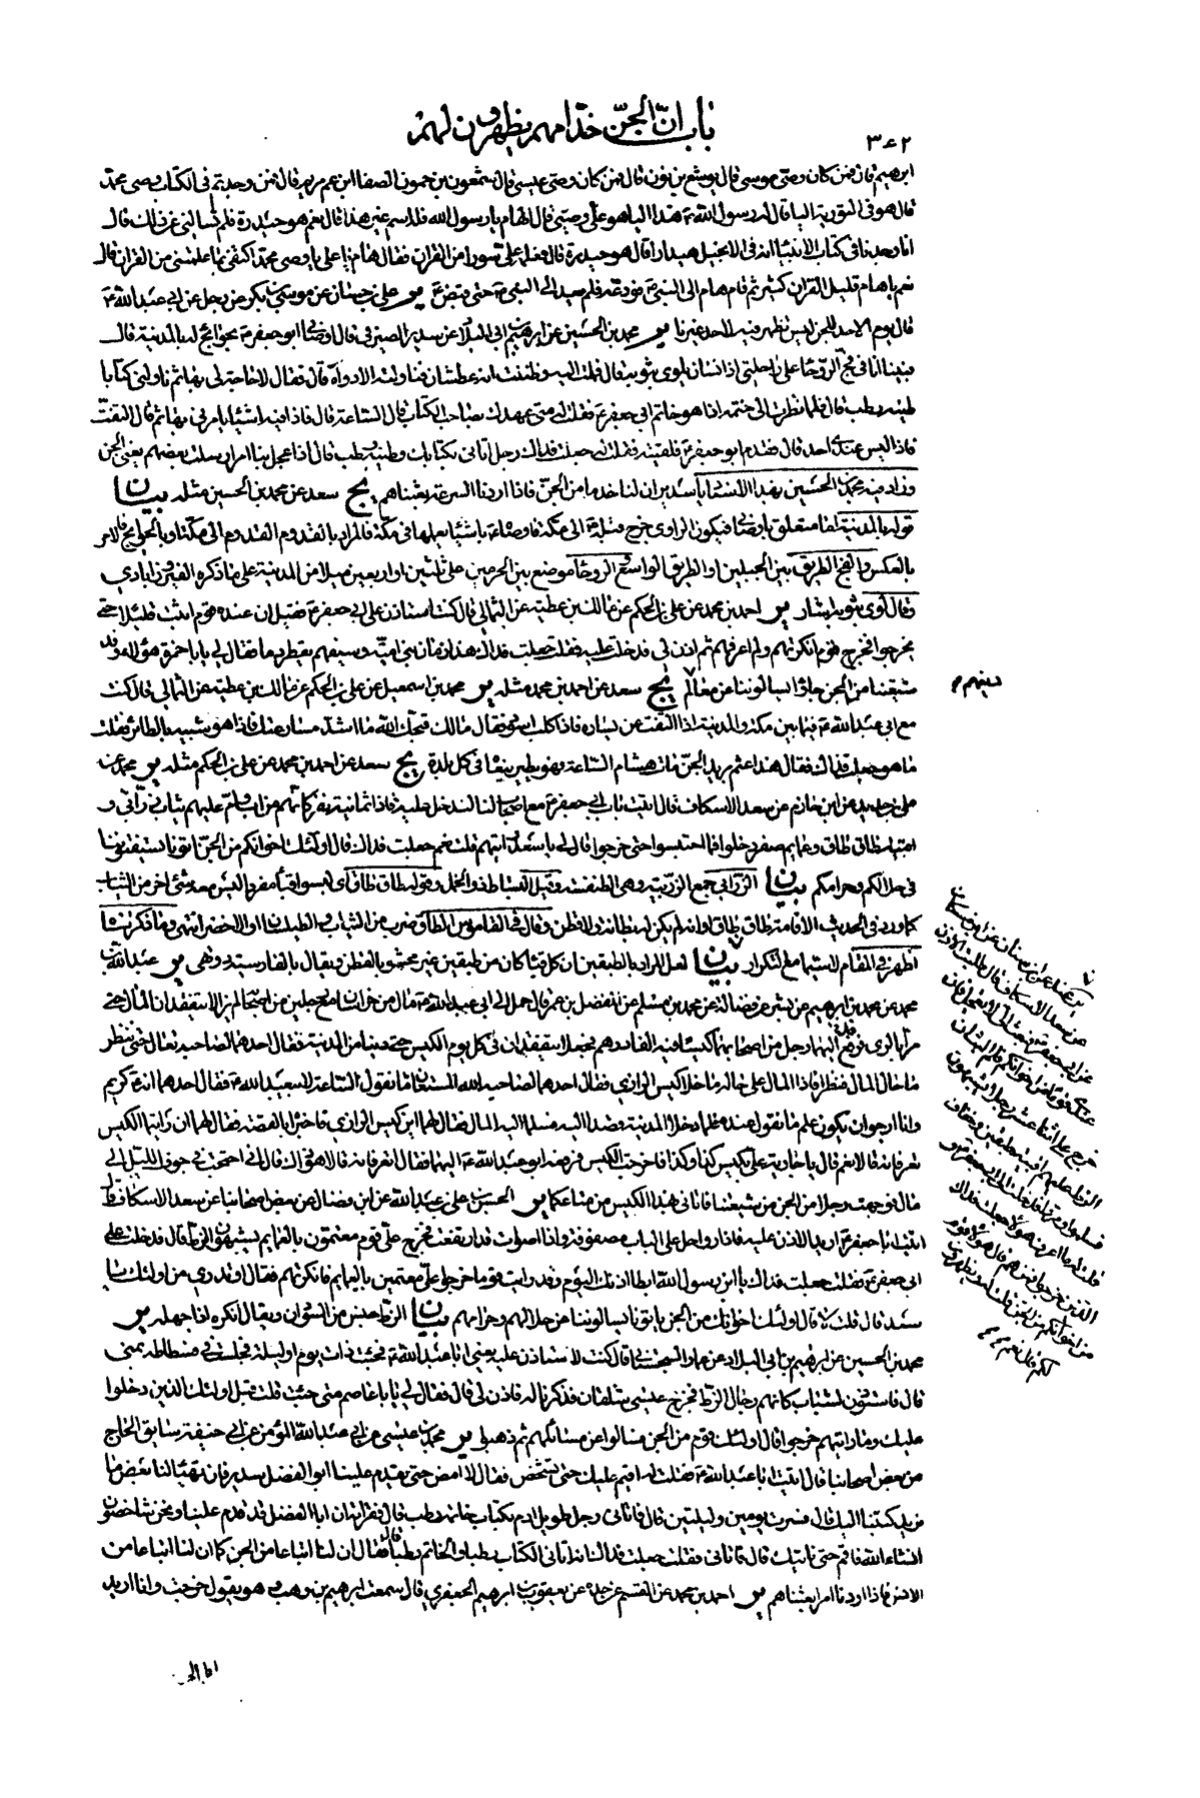 باب انّ الجنّ خدّامهم يظهرون لهم
٣٤٢
ابرهيم قال فمن كان وصىّ موسى قال يوشع بن نون قال فمن كان وصىّ عيسى قال شمعون بن حمون الصفا ابن عم مريم قال فمن وجدتم فى الكتاب وصى محمّد
قال هو فى التورية اليا قال له رسول الله هذا اليا هو علىّ وصيّى قال الهام يا رسول الله فله اسم غير هذا قال نعم هو حيدرة فلم تسالنى عن ذلك قال
انا وجدنا فى كتاب الانبياء انه فى الانجيل هيدارا قال هو حيدرة قال فعلمه علىّ سورا من القران فقال هام يا على يا وصى محمّد اكتفى بما علمتنى من القران قال
نعم يا هام قليل القران كثير ثم قام هام الى النبى فودعه فلم يعد الى النبى حتى قبض ير على بن حسان عن موسى بن بكر عن رجل عن ابى عبد الله
قال يوم الاحد للجن ليس تظهر فيه لاحد غيرنا ير محمد بن الحسين عن ابرهيم بن ابى البلاد عن سدير الصيرفى قال اوصانى ابو جعفر بحوائج له بالمدينة قال
فبينا انا فى فجّ الروحا على راحلتى اذا انسان يلوى بثوبه قال فملت اليه وظننت انه عطشان فناولته الادواة قال فقال لا حاجة لى بها ثم ناولنى كتابا
طينه رطب قال فلما نظرت الى ختمه اذا هو خاتم ابى جعفر فقلت له متى عهدك بصاحب الكتاب قال الساعة قال فاذا فيه اشياء يامرنى بها ثم قال التفتّ
فاذا ليس عندى احد قال فقدم ابو جعفر فلقيته فقلت له جعلت فداك رجل اتانى بكتابك وطينه رطب قال اذا عجل بنا امر ارسلت بعضهم يعنى الجن
وزاد فيه محمد بن الحسين بهذا الاسناد يا سدير ان لنا خدما من الجنّ فاذا اردنا السرعة بعثناهم يج سعد عن محمد بن الحسين مثله بيان
قوله بالمدينة اما متعلق باوصانى فيكون الراوى خرج قبله الى مكة فاوصاه باشياء يعملها فى مكة فالمراد بالقدوم القدوم الى مكة او بالحوائج فالامر
بالعكس والفج الطريق بين الجبلين او الطريق الواسع الروحا موضع بين الحرمين على ثلثين او اربعين ميلا من المدينة على ما ذكره الفيروزابادى
وقال الوى بثوبه اشار ير احمد بن محمد عن على بن الحكم عن مالك بن عطية عن الثمالى قال كنت استاذن على ابى جعفر فقيل ان عنده قوم اثبت قليلا حتى
يخرجوا فخرج قوم انكرتهم ولم اعرفهم ثم اذن لى فدخلت عليه فقلت جعلت فداك هذا زمان بنى امية وسيفهم يقطر دما فقال لى يا با حمزة هؤلاء وفد
شيعتنا من الجن جاؤا يسالوننا من معالم يج سعد عن احمد بن محمد مثله ير محمد بن اسمعيل عن على بن الحكم عن مالك بن عطية عن الثمالى قال كنت
دينهم
مع ابى عبد الله فيما بين مكة والمدينة اذا التفت عن يساره فاذا كلب اسود فقال مالك قبحك الله ما اشد مسارعتك فاذا هو شبيه بالطائر فقلت
ما هو جعلت فداك فقال هذا عثم بريد الجنّ مات هشام الساعة وهو يطير ينعاه فى كل بلدة يج سعد عن احمد بن محمد عن على بن الحكم مثله ير محمد عن
على بن حديد عن ابن حازم عن سعد الاسكاف قال اتيت باب ابى جعفر مع اصحاب لنا لندخل عليه فاذا ثمانية نفر كانهم من اب وامّ عليهم ثياب زرابى و
اقبية طاق طاق وعمايم صفر دخلوا فما احتبسوا حتى خرجوا قال لى يا سعد رايتهم قلت نعم جعلت فداك قال اولئك اخوانكم من الجنّ اتونا يستفتوننا
فى حلالكم وحرامكم بيان الزرابى جمع الزربية وهى الطنفسة وقيل البساط ذو الخمل وقوله طاق طاق اى لبسوا قباء مفردا ليس معه شئ اخر من الثياب
كما ورد فى الحديث الاقامة طاق طاق او انه لم يكن له بطانة ولا قطن وقال فى القاموس الطاق ضرب من الثياب والطيلسان او الاخضر انتهى وما ذكرناه
اظهر فى المقام لا سيما مع التكرار بيان لعل المراد بالطبقين ان كل قباء كان من طبقين غير محشو بالقطن ويقال بالفارسية دوتهى ير عبد الله بن
محمد عن محمد بن ابرهيم عن بشر عن فضالة عن محمد بن مسلم عن المفضل بن عمر قال حمل الى ابى عبد الله مال من خراسان مع رجلين من اصحابه لم يزالا يتفقدان المال حتى
مرّا بالرى فرفع اليهما رجل من اصحابهما كيسا فيه الفا درهم فجعلا يتفقدان فى كل يوم الكيس حتى دنيا من المدينة فقال احدهما لصاحبه تعال حتى ننظر
ما حال المال فنظرا فاذا المال على حاله ما خلا كيس الرازى فقال احدهما لصاحبه الله المستعان ما نقول الساعة لابى عبد الله فقال احدهما انه كريم
وانا ارجو ان يكون علم ما نقول عنده فلما دخلا المدينة قصدا اليه فسلما اليه المال فقال لهما اين كيس الرازى فاخبراه بالقصة فقال لهما ان رايتما الكيس
تعرفانه قالا نعم قال يا جارية علىّ بكيس كذا وكذا فاخرجت الكيس فرفعه ابو عبد الله اليهما فقال اتعرفانه قالا هو ذاك قال انى احتجت فى جوف الليل الى
مال فوجهت رجلا من الجن من شيعتنا فاتانى بهذا الكيس من متاعكما ير الحسن بن على بن عبد الله عن ابن فضال عن بعض اصحابنا عن سعد الاسكاف قال
اتيت ابا جعفر اريد الاذن عليه فاذا رواحل على الباب مصفوفة واذا اصوات قد ارتفعت فخرج علىّ قوم معتمون بالعمايم يشبهون الزط قال فدخلت على
ابى جعفر فقلت جعلت فداك يا ابن رسول الله ابطا اذنك اليوم وقد رايت قوما خرجوا علىّ معتمين بالعمايم فانكرتهم فقال او تدرى من اولئك يا
سعد قال قلت لا قال اولئك اخوانك من الجن ياتونا يسالوننا من حلالهم وحرامهم بيان الزط جنس من السودان ويقال انكره اذا جهله ير
محمد بن الحسين عن ابرهيم بن ابى البلاد عن عمار السجستانى قال كنت لا استاذن عليه يعنى ابا عبد الله فجئت ذات يوم او ليلة فجلست فى فسطاطه بمنى
قال فاستؤذن لشباب كانهم رجال الزط فخرج عيسى شلقان فذكرنا له فاذن لى قال فقال لى يا با عاصم متى جئت قلت قبل اولئك الذين دخلوا
عليك وما رايتهم خرجوا قال اولئك قوم من الجن فسالوا عن مسائلهم ثم ذهبوا ير محمد بن عيسى عن ابى عبد الله المؤمن عن ابى حنيفة سايق الحاج
عن بعض اصحابنا قال اتيت ابا عبد الله فقلت له اقيم عليك حتى تشخص فقال لا امض حتى يقدم علينا ابو الفضل سدير فان تهيّا لنا بعض ما
نريد كتبنا اليك قال فسرت يومين وليلتين قال فاتانى رجل طويل ادم بكتاب خاتمه رطب قال فقراته ان ابا الفضل قد قدم علينا ونحن شاخصون
انشاء الله فاقم حتى ناتيك قال فاتانى فقلت جعلت فداك انه اتانى الكتاب رطبا والخاتم رطبا قال فقال ان لنا اتباعا من الجن كما ان لنا اتباعا من
الانس فاذا اردنا امرا بعثناهم ير احمد بن محمد عن القسم عن جده عن يعقوب بن ابرهيم الجعفرى قال سمعت ابرهيم بن وهب وهو يقول خرجت وانا اريد
عن سعد الاسكاف قال طلبت الاذن
خرج علىّ اثنا عشر رجلا يشبهون
من اخوانكم من الجن قلت له ويظهرون
لكم قال نعم